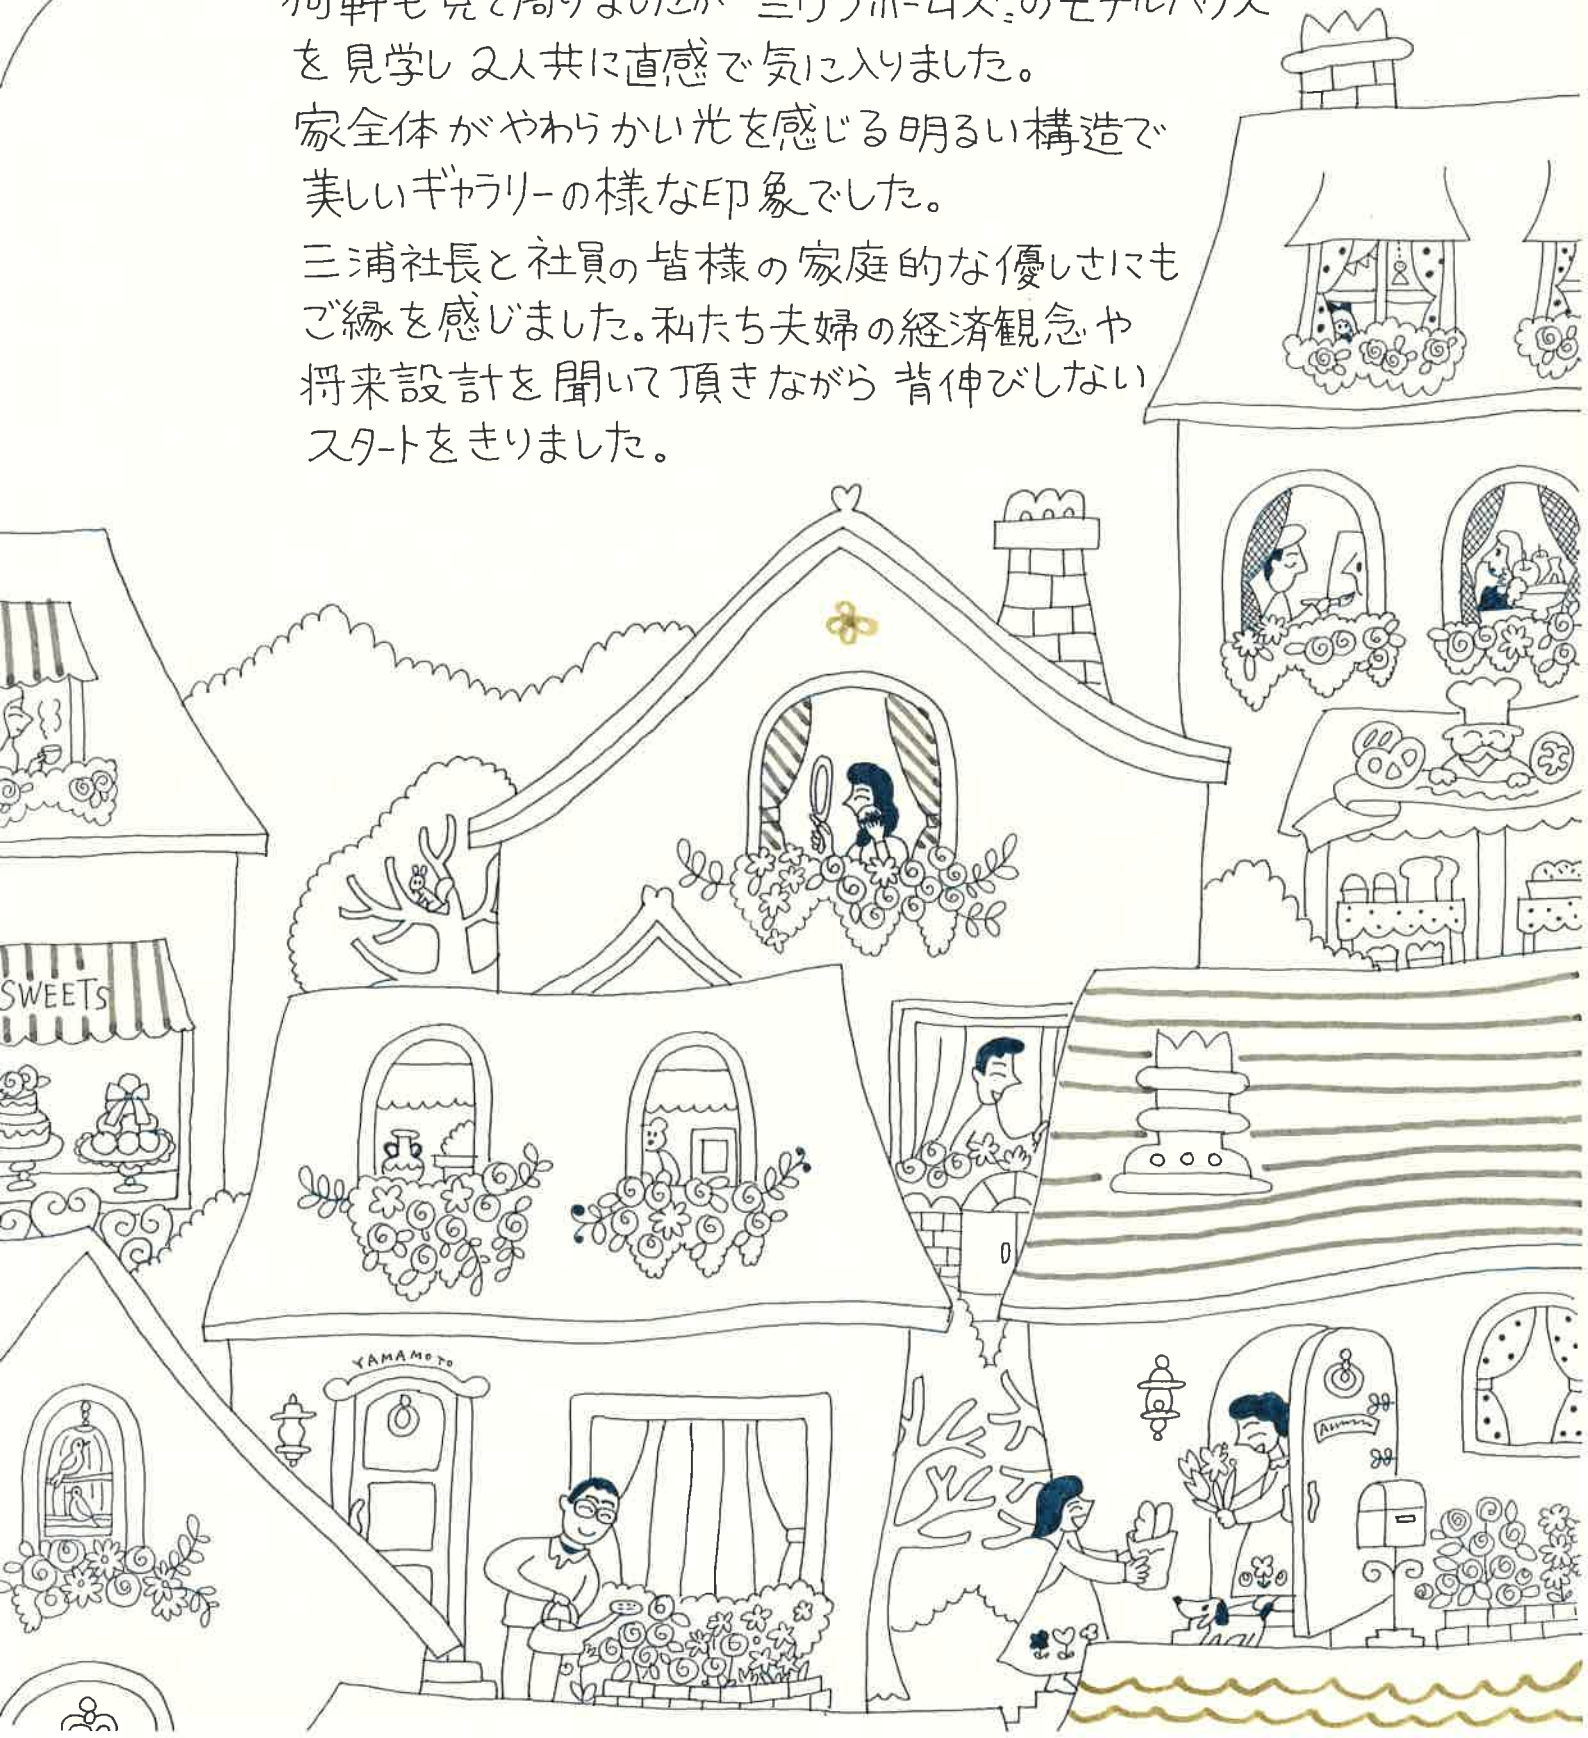 何軒も見て周りましたが "ミウラホームズ"のモデルハウス
を見学し 2人共に直感で気に入りました。
家全体がやわらかい光を感じる明るい構造で
美しいギャラリーの様な印象でした。
三浦社長と社員の皆様の家庭的な優しさにも
ご縁を感じました。私たち夫婦の経済観念や
将来設計を聞いて頂きながら 背伸びしない
スタートをきりました。
SWEETS
YAMAMOTO